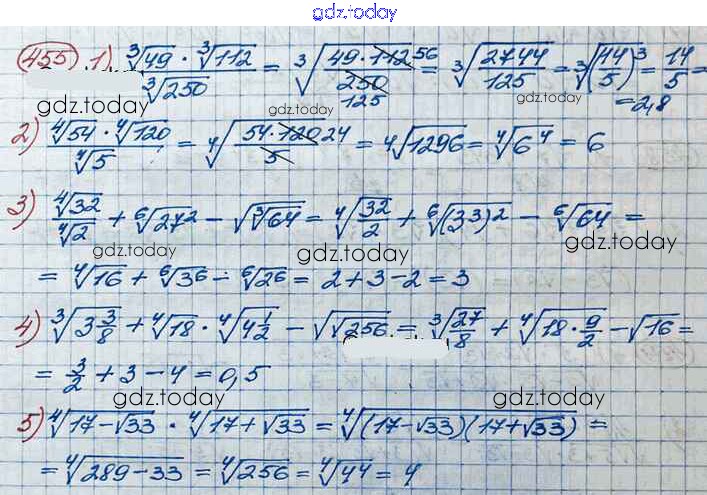 gdz.today
455 1) ∛49 · ∛112 / ∛250 = ∛(49 · 112 56 / 250 125) = ∛(2744/125) = ∛(14/5)³ = 14/5 =
gdz.today gdz.today gdz.today = 2,8
2) ⁴√54 · ⁴√120 / ⁴√5 = ⁴√(54 · 120 24 / 5) = ⁴√1296 = ⁴√6⁴ = 6
3) ⁴√32 / ⁴√2 + ⁶√27² − √∛64 = ⁴√(32/2) + ⁶√(3³)² − ⁶√64 =
gdz.today gdz.today gdz.today
= ⁴√16 + ⁶√3⁶ − ⁶√2⁶ = 2 + 3 − 2 = 3
4) ∛(3 3/8) + ⁴√18 · ⁴√(4 1/2) − √√256 = ∛(27/8) + ⁴√(18 · 9/2) − √16 =
= 3/2 + 3 − 4 = 0,5
gdz.today gdz.today
5) ⁴√(17 − √33) · ⁴√(17 + √33) = ⁴√((17 − √33)(17 + √33)) =
= ⁴√(289 − 33) = ⁴√256 = ⁴√4⁴ = 4